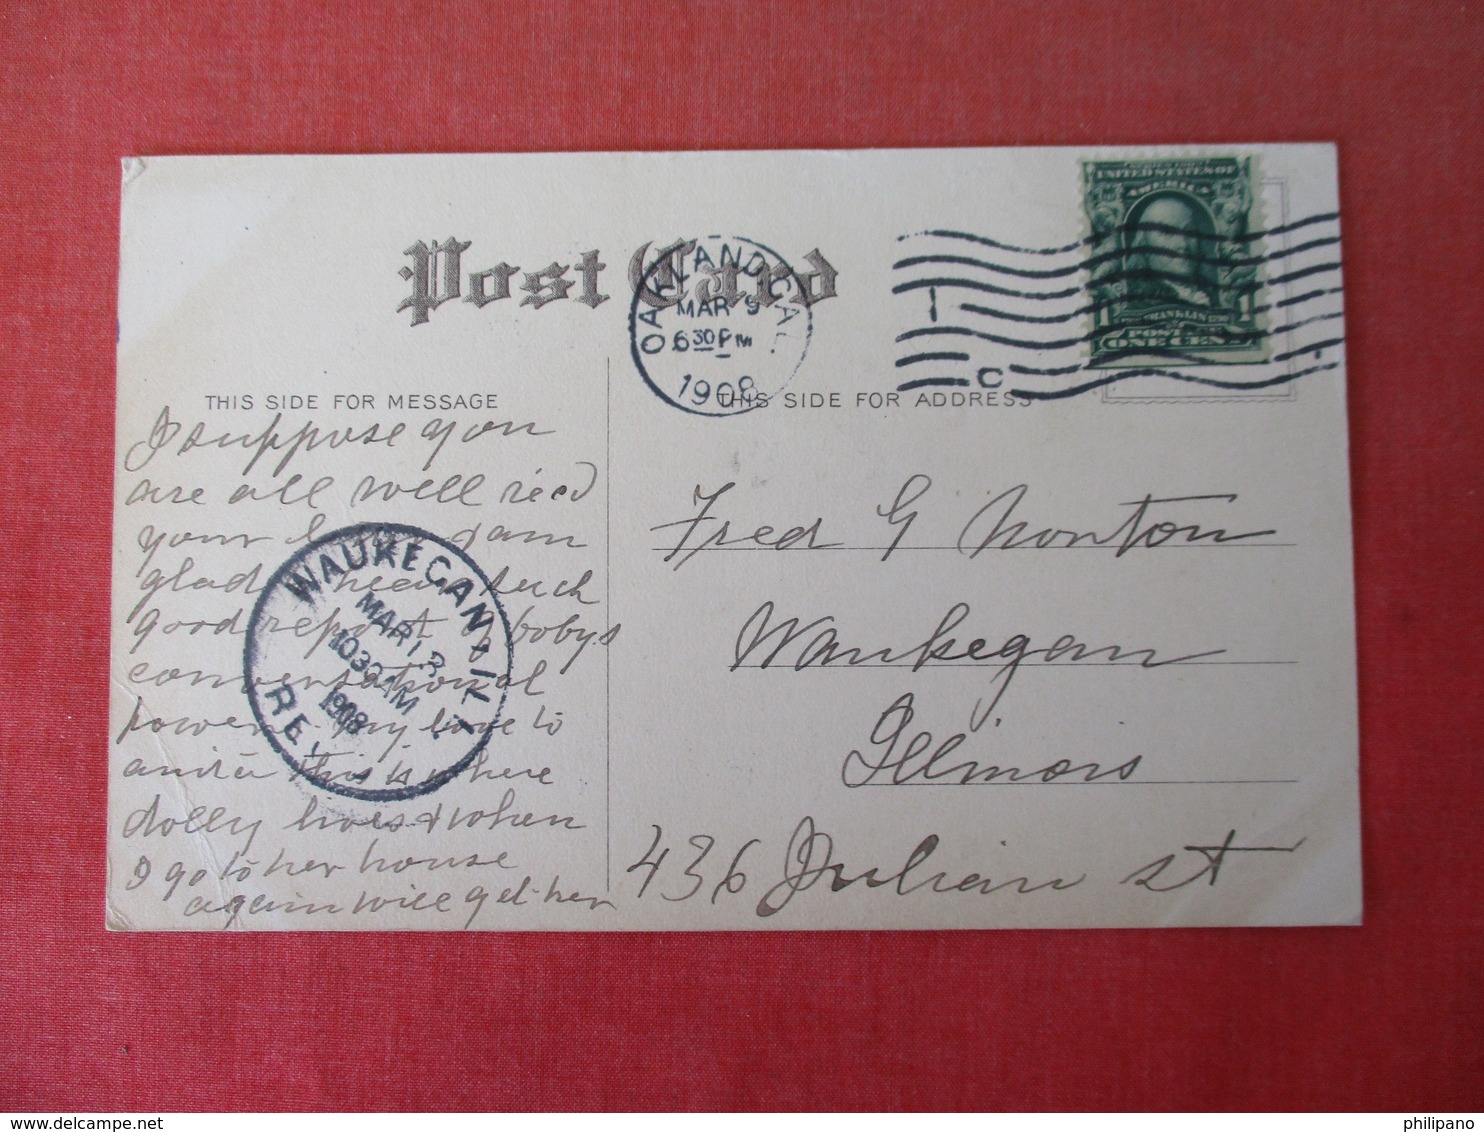 Post Card
OAKLAND, CAL.
MAR 9
6 30 PM
1908
C
UNITED STATES OF
AMERICA
1 1
FRANKLIN
POSTAGE
ONE CENT
THIS SIDE FOR MESSAGE
THIS SIDE FOR ADDRESS
I suppose you
are all well rec'd
your I am
glad hear such
good report of bobys
conversational
power my love to
anita this is where
dolly lives & when
I go to her house
again will get her
WAUKEGAN, ILL.
MAR 13
1030 AM
1908
REC
Fred G Norton
Waukegan
Illinois
436 Julian st
philipano